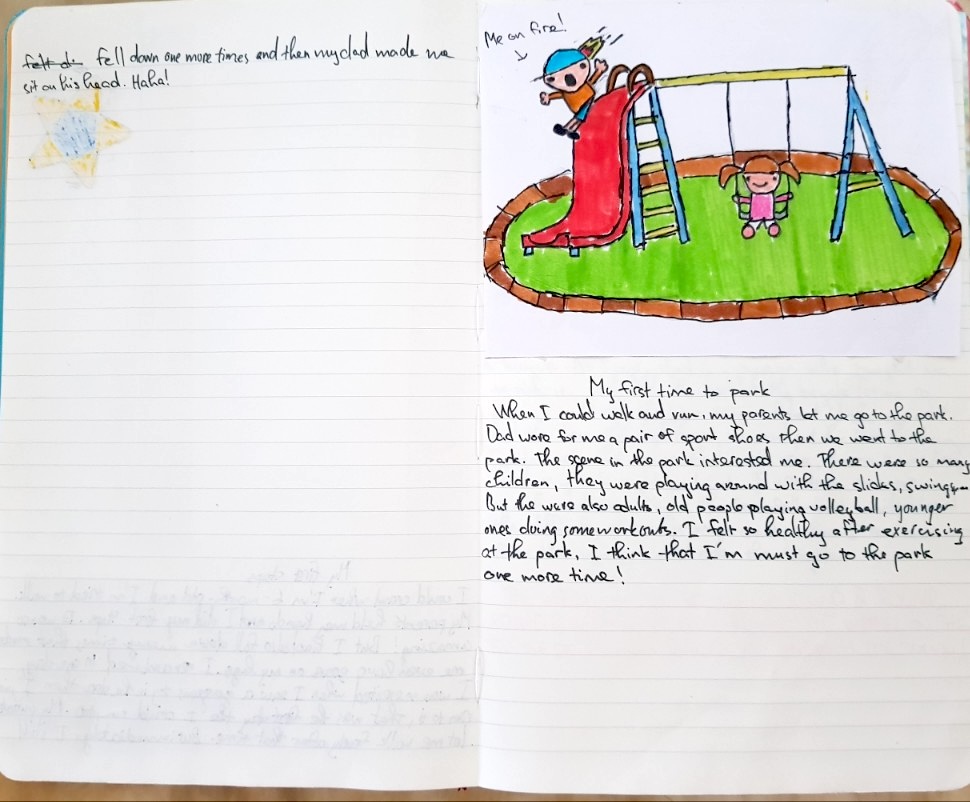 felt do fell down one more times and then my dad made me
sit on his head. Haha!
Me on fire!
My first time to park
When I could walk and run, my parents let me go to the park.
Dad wore for me a pair of sport shoes then we went to the
park. The scene in the park interested me. There were so many
children, they were playing around with the slides, swings...
But the were also adults, old people playing volleyball, younger
ones doing some workouts. I felt so healthy after exercising
at the park, I think that I'm must go to the park
one more time!